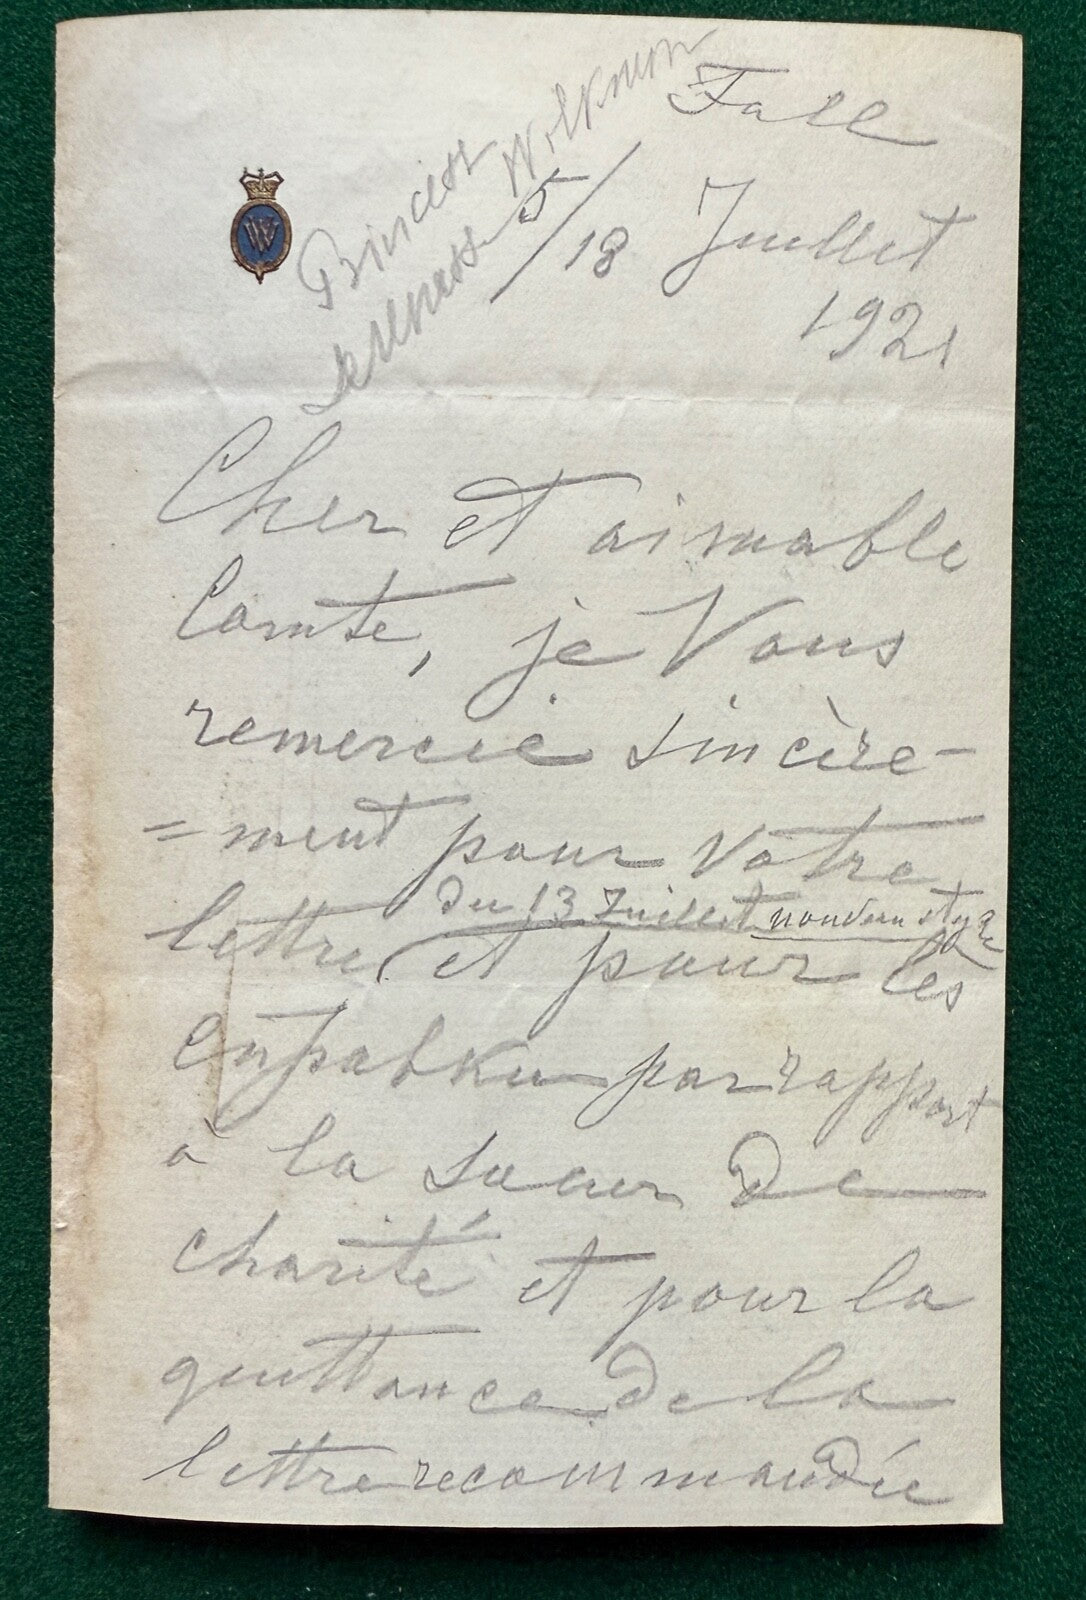 Princess Wolkonsky
Fall
5/18 Juillet
1921
Cher et aimable
Comte, je Vous
remercie sincère-
=ment pour Votre
du 13 Juillet nouveau style
lettre et pour les
справки par rapport
à la soeur de
charité et pour la
quittance de la
lettre recommandée